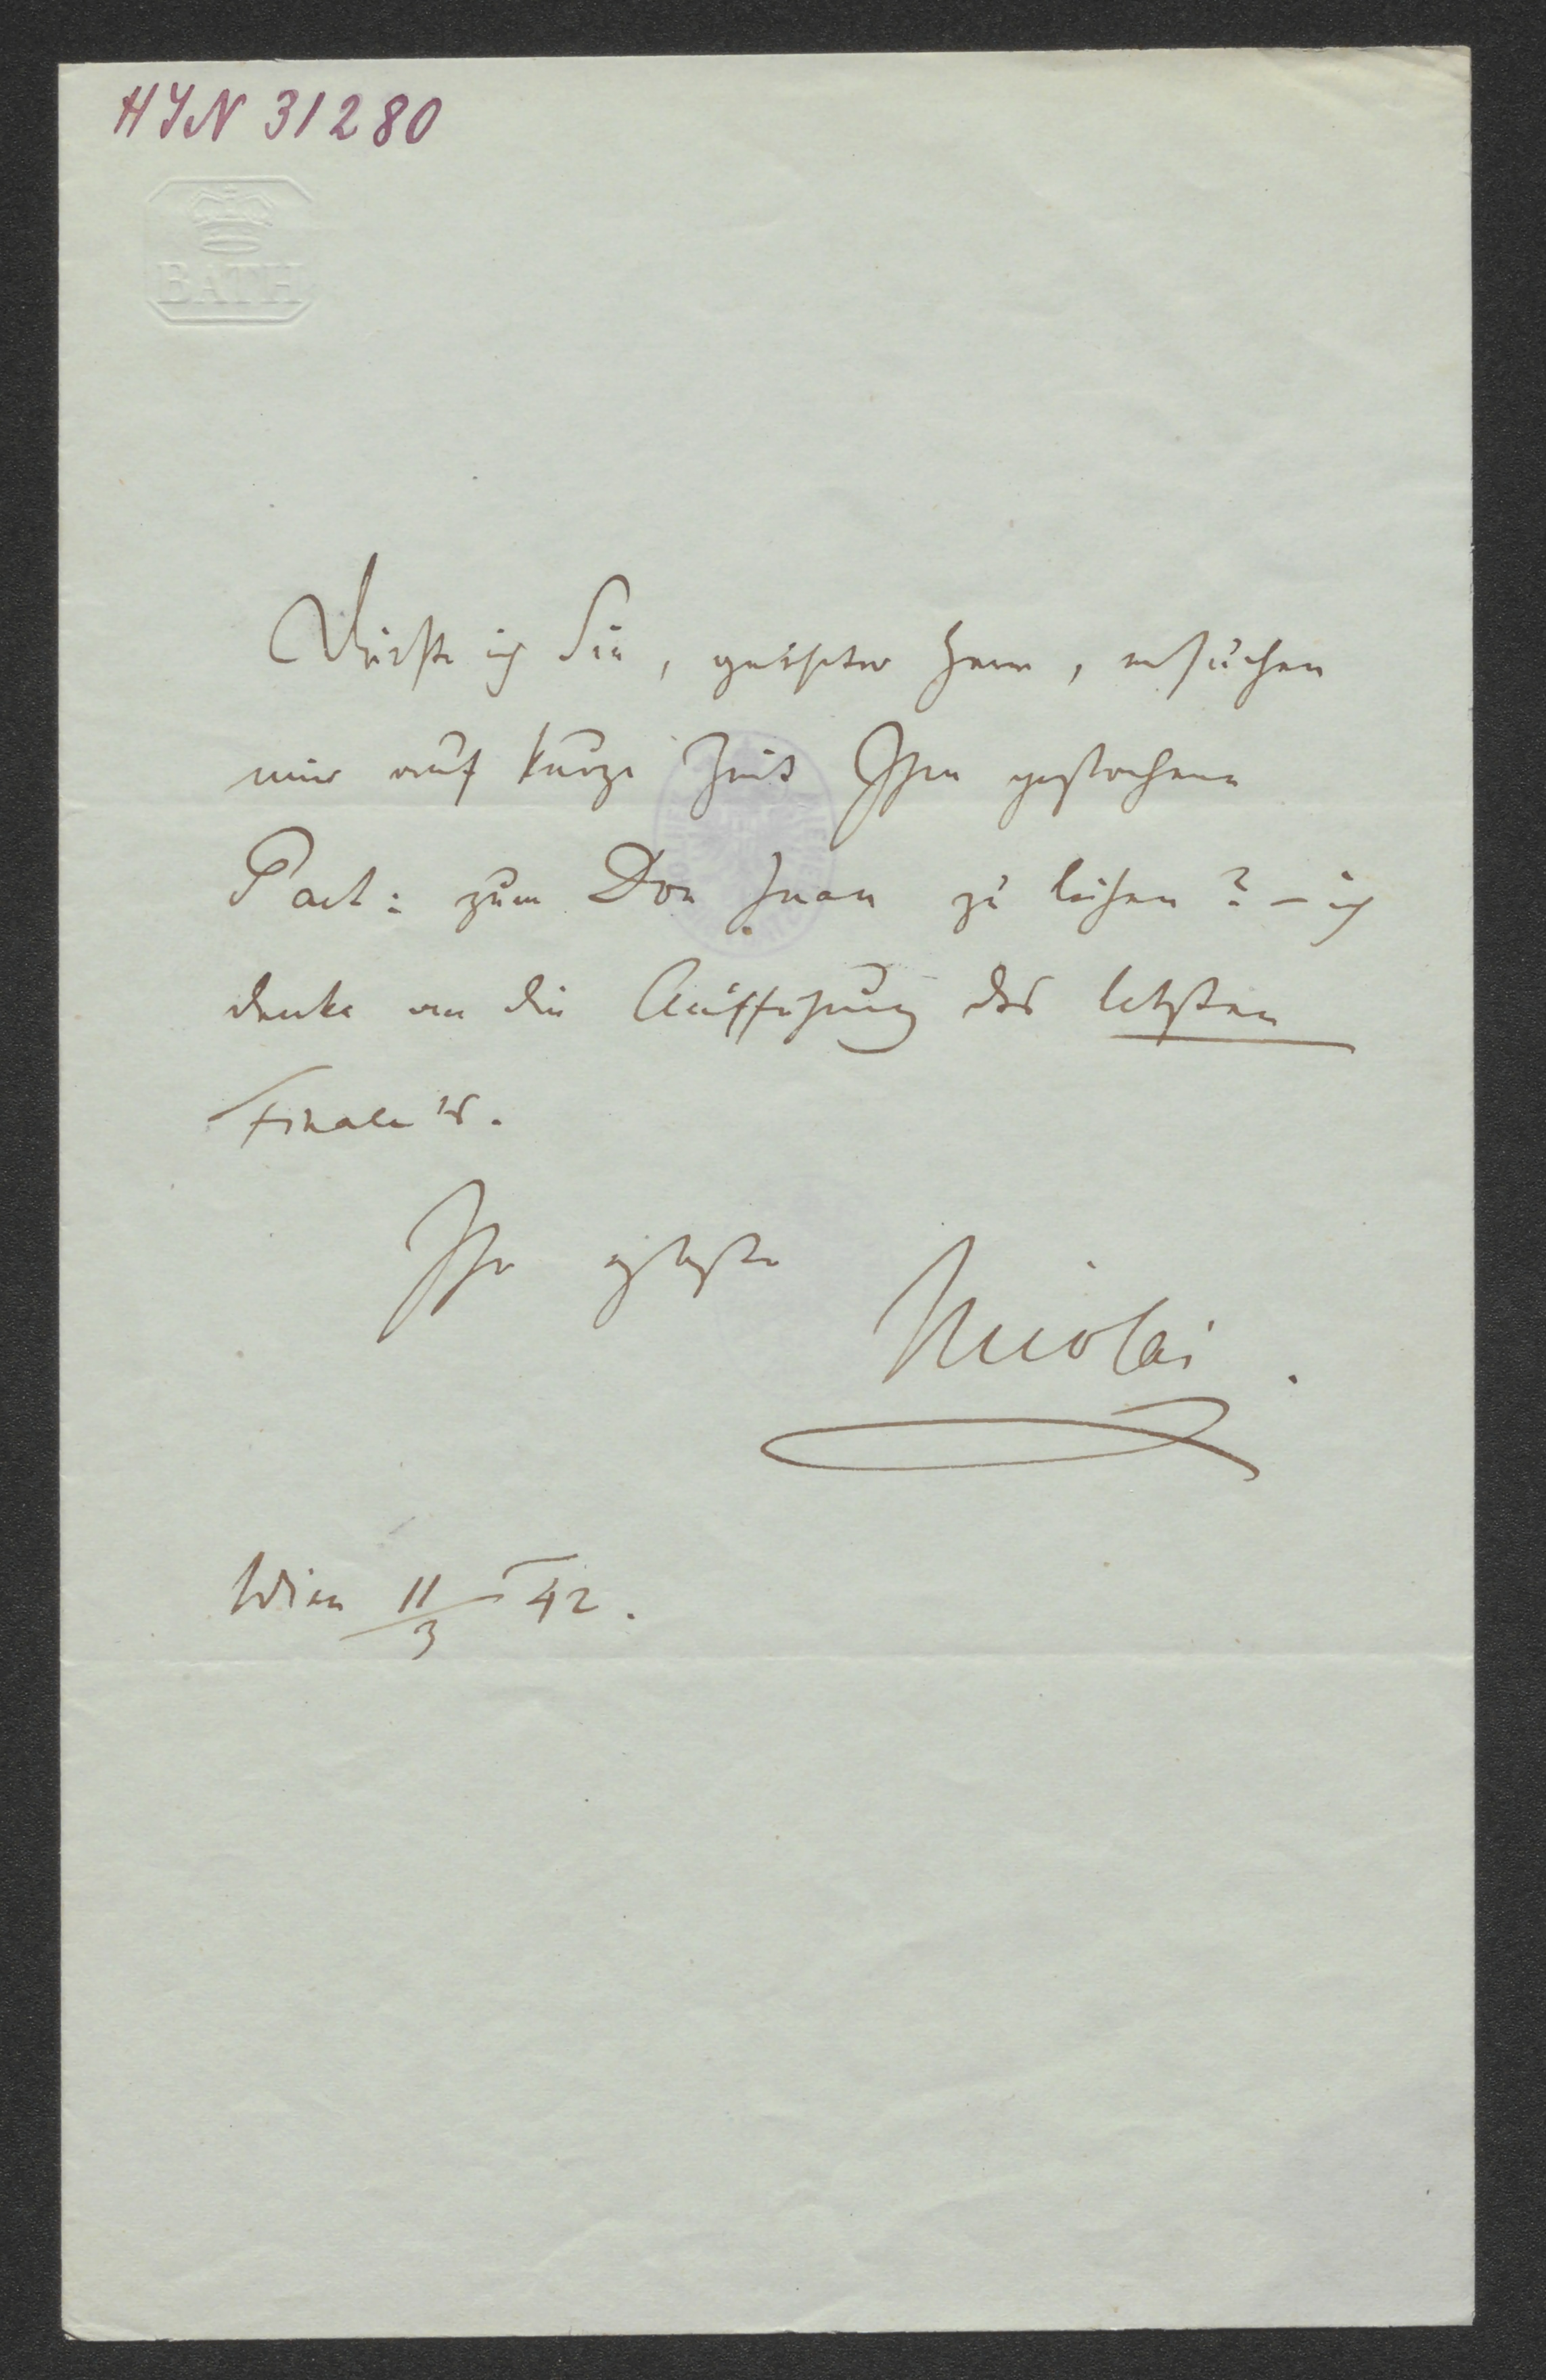 HIN 31280
BATH
Dürfte ich Sie, geehrter Herr, ersuchen
mir auf kurze Zeit Ihre gestochene
Part: zum Don Juan zu leihen? – ich
denke an die Aufführung des letzten
Finale's.
Ihr
Nicolai.
Wien 11/3 42.